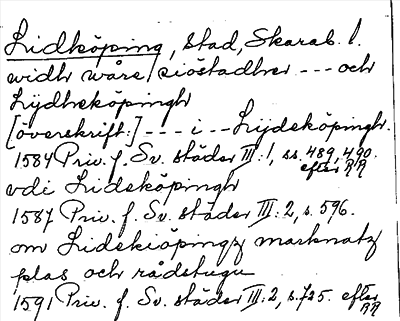 Lidköping, stad, Skarab. l.
widh wåre siöstadher --- och
Lijdheköpingh
[överskrift:] --- i -- Lijdeköpingh.
1584 Priv. f. Sv. städer III:1, ss. 489, 490.
efter RR
vdi Lideköpingh
1587 Priv. f. Sv. städer III:2, s. 596.
om Lidekiöpingz marknatz
plas och rådstugu
1591 Priv. f. Sv. städer III:2, s. 725. efter
RR